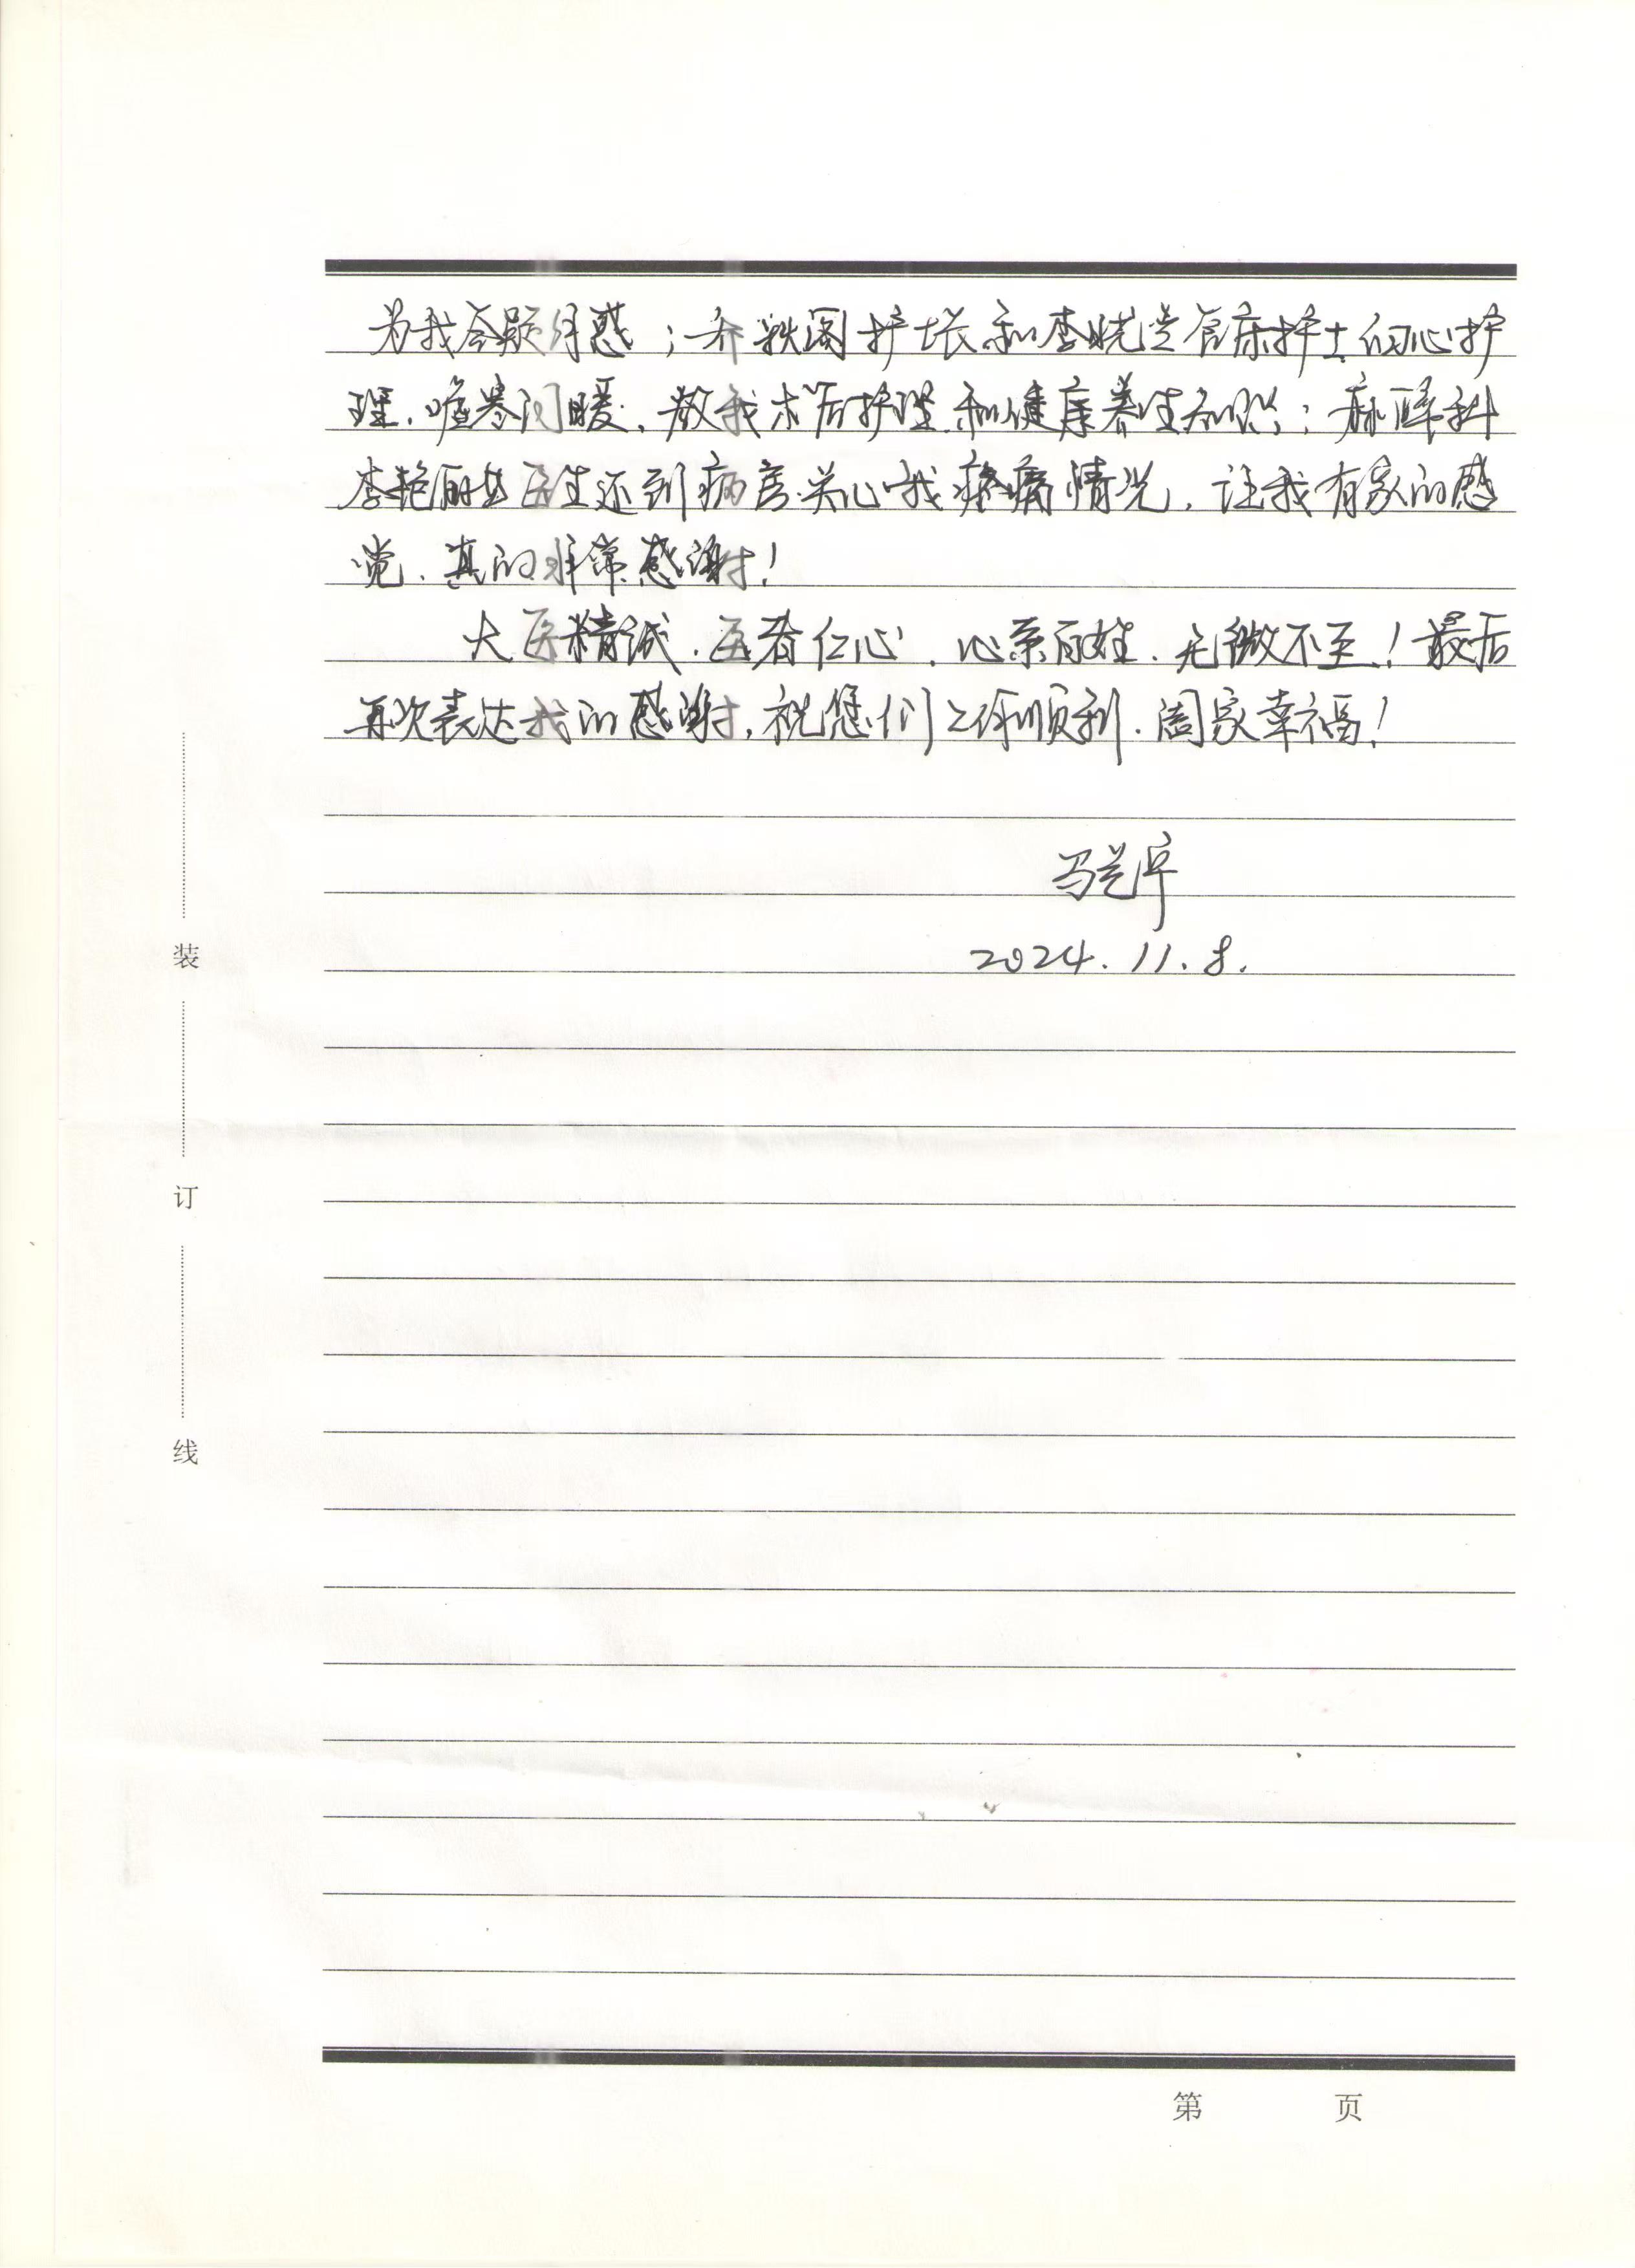 为我答疑解惑；乔轶阁护士长和李晓莹管床护士细心护
理，嘘寒问暖，教我术后护理和健康养生知识；麻醉科
李艳丽女医生还到病房关心我疼痛情况，让我有家的感
觉，真的非常感谢！
大医精诚，医者仁心，心系百姓，无微不至！最后
再次表达我的感谢，祝您们工作顺利，阖家幸福！
2024.11.8.
装
订
线
第 页